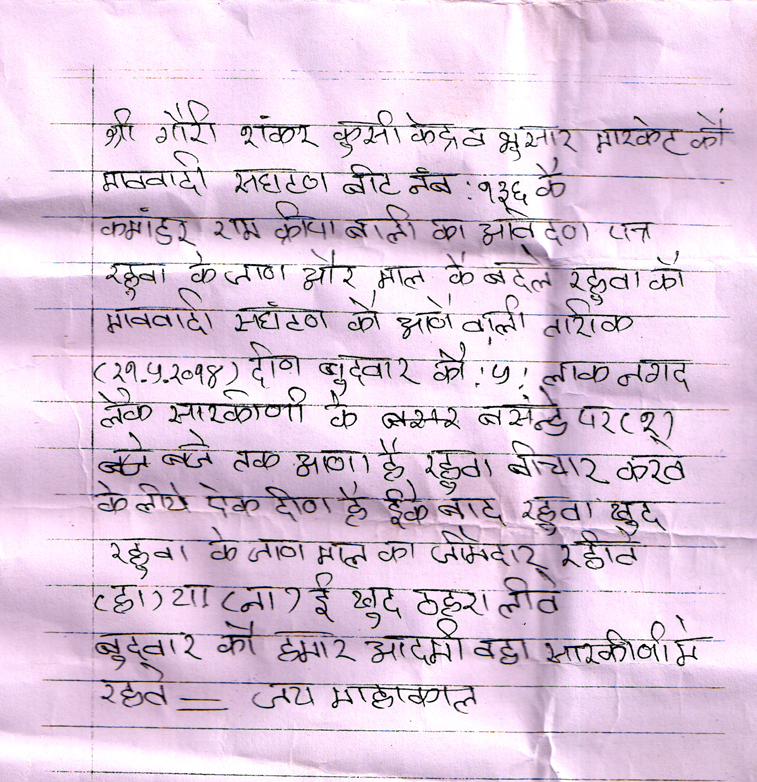 श्री गौरी शंकर कुसी केद्र व भुसार मारकेट को
मावबादी सघटण बीट नंब : १३६ के
कमांडर राम क्रीपा बाली का आवेदण पत्र
रहुवा के जाण और माल के बदले रहुवा को
मावबादी सघंटण को आणे वाली तारीक
(२१.५.२०१४) दीण बुदवार को ! ५ ! लाक नगद
लेके सारकीणी के बसर बसेन्डे पर (१)
बजे बजे तक आणा है रहुवा बीचार करव
के लीये ऐक दीण है ईके बाद रहुवा खुद
रहुवा के जाण माल का जीमेदार रहीवे
(हा) या (ना) ई खुद ठहरा लीवे
बुदवार को हमार आदमी वहा सारकीणी मे
रहवे = जय माहाकाल